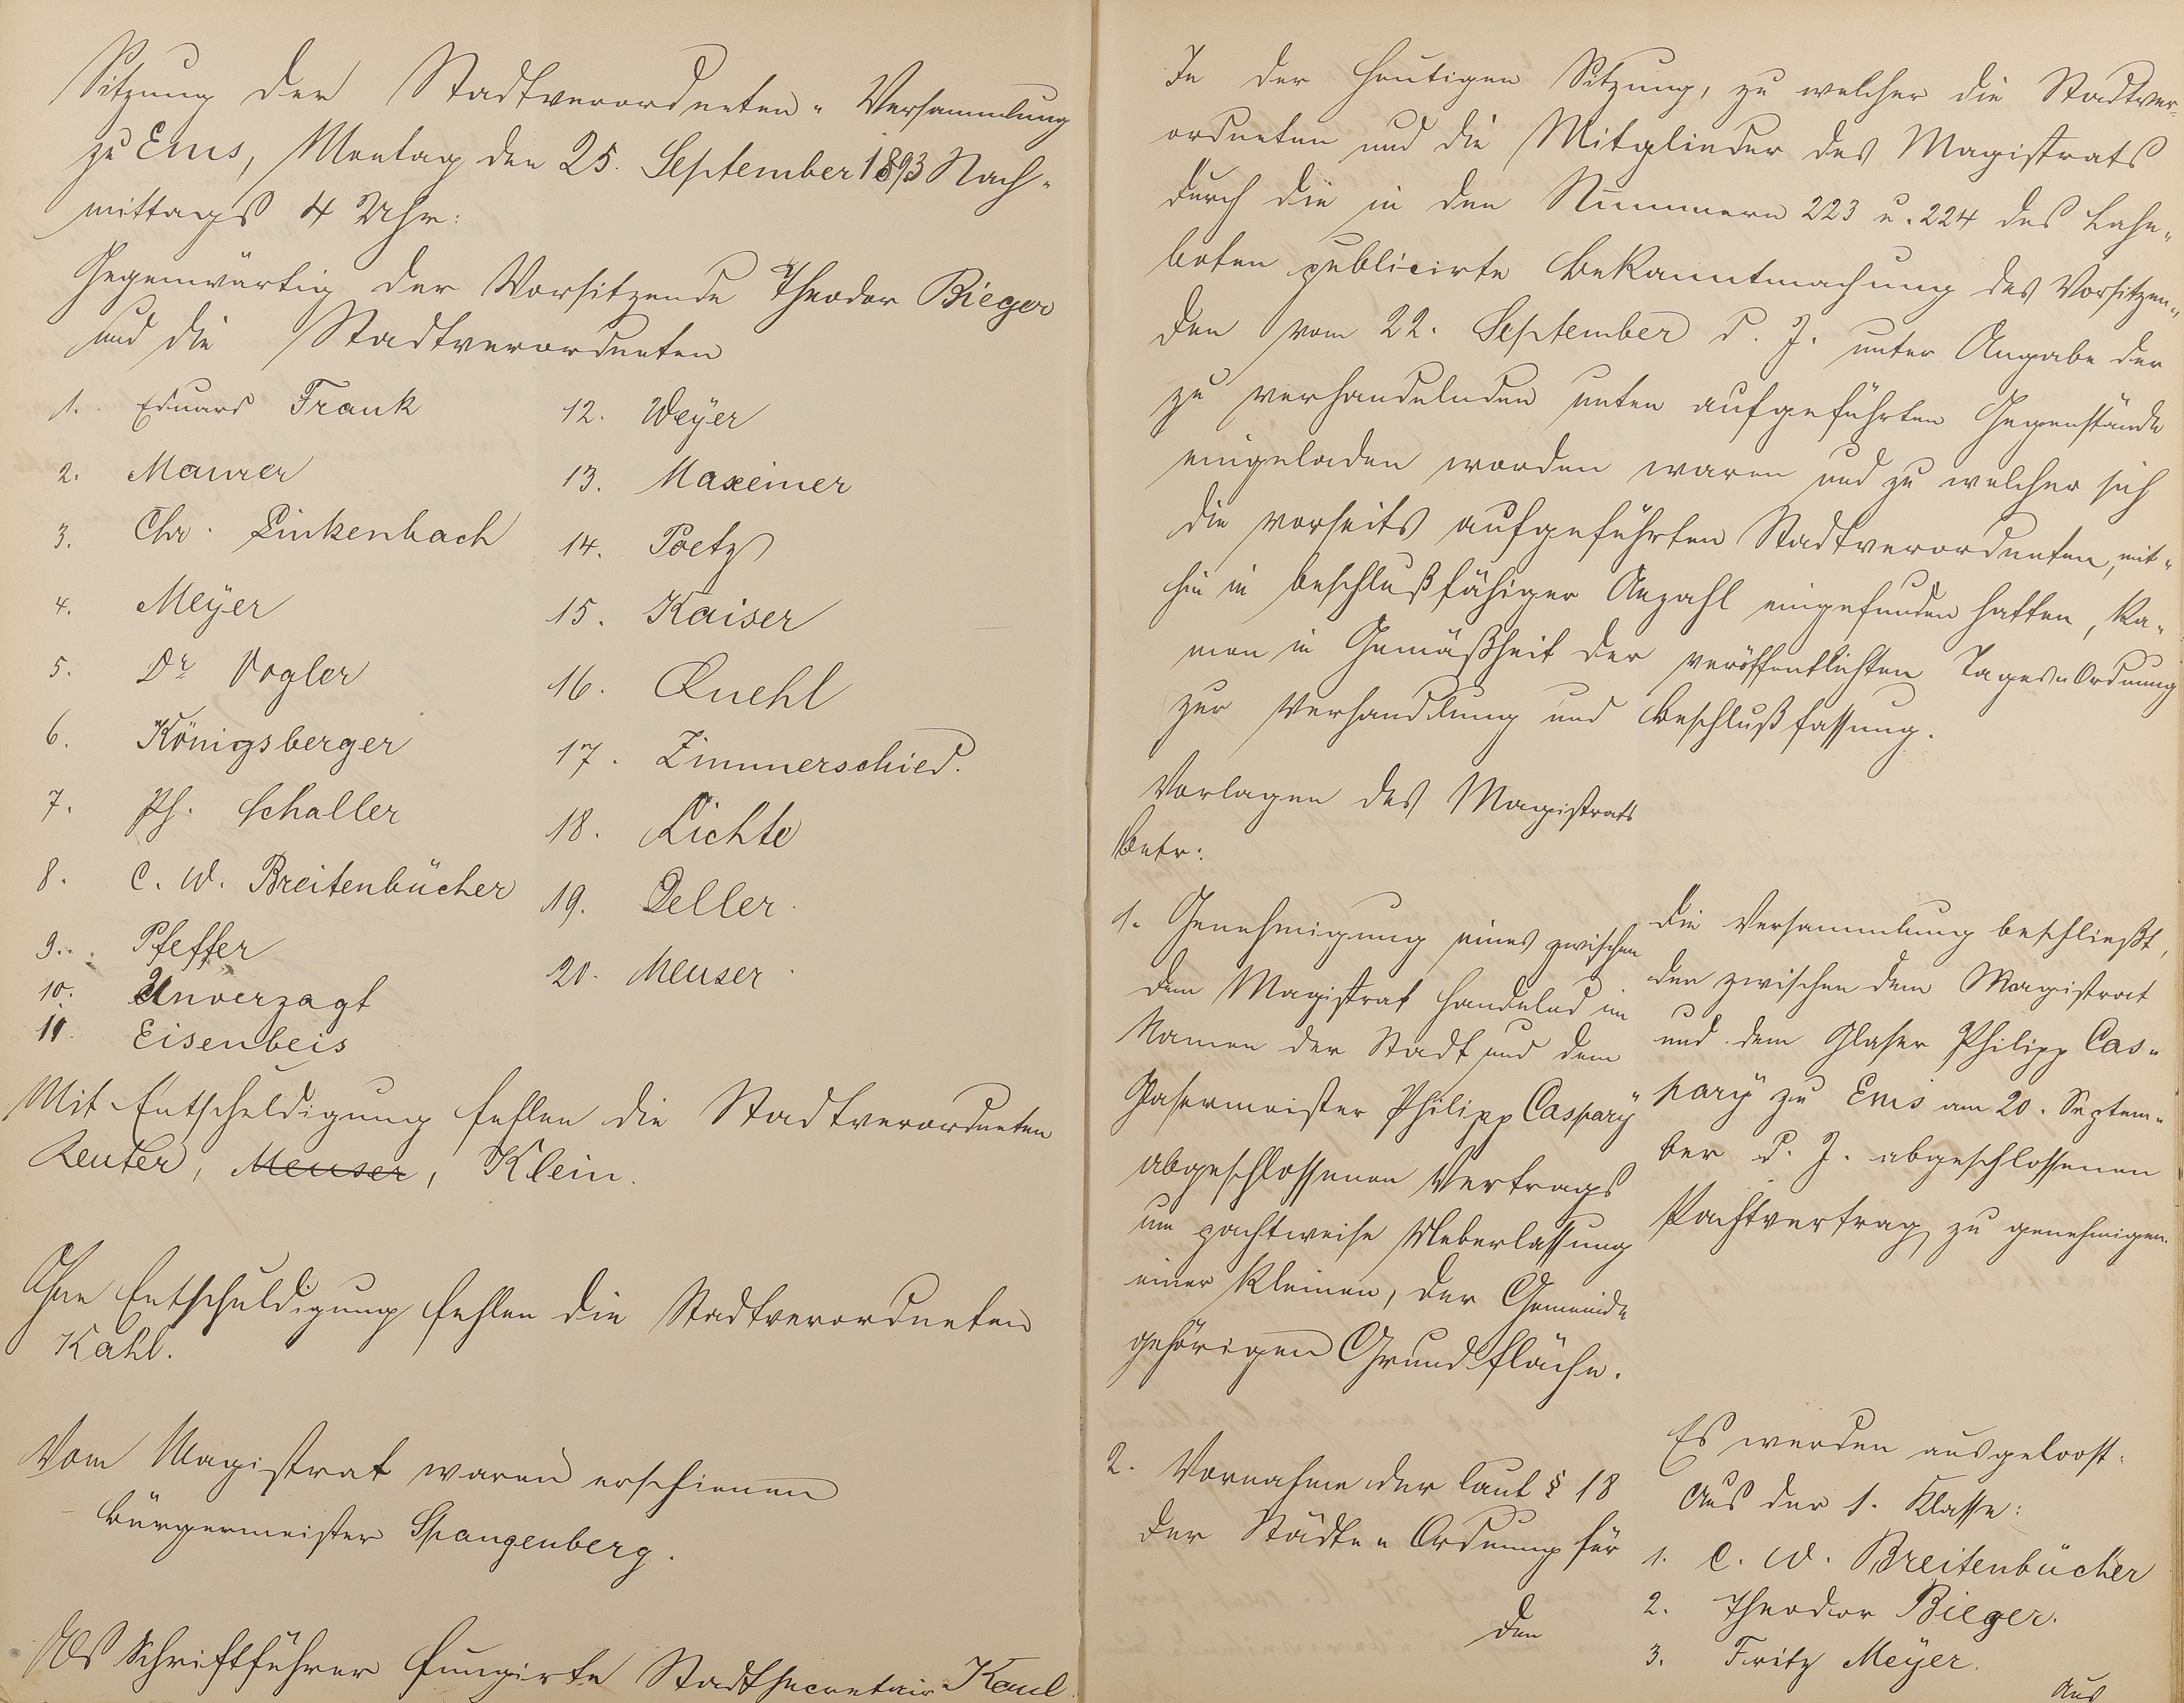 Sitzung der Stadtverordneten-Versammlung
zu Ems, Montag den 25. September 1893 Nach-
mittags 4 Uhr:
Gegenwärtig der Vorsitzende Theodor Bieger
und die Stadtverordneten
1. Eduard Frank
2. Maurer
3. Chr. Linkenbach
4. Meÿer
5. Dr Vogler
6. Königsberger
7. Ph. Schaller
8. C. W. Breitenbücher
9. Pfeffer
10. Unverzagt
11. Eisenbeis
12. Weÿer
13. Maxeiner
14. Poetz
15. Kaiser
16. Quehl
17. Zimmerschied.
18. Lichte
19. Deller.
20. Meuser.
Mit Entschuldigung fehlen die Stadtverordneten
Reuter, Meuser, Klein.
Ohne Entschuldigung fehlen die Stadtverordneten
Kahl.
Vom Magistrat waren erschienen
Bürgermeister Spangenberg.
Als Schriftführer fungirte Stadtsecretair Kaul.
In der heutigen Sitzung, zu welcher die Stadtver-
ordneten und die Mitglieder des Magistrats
durch die in den Nummern 223 u. 224 des Lahn-
boten publicirte Bekanntmachung des Vorsitzen-
den vom 22. September d. J. unter Angabe der
zu verhandelnden unten aufgeführten Gegenstände
eingeladen worden waren und zu welcher sich
die vorseits aufgeführten Stadtverordneten, mit-
hin in beschlußfähiger Anzahl eingefunden hatten, ka-
men in Gemäßheit der veröffentlichten Tages-Ordnung
zur Verhandlung und Beschlußfassung.
Vorlagen des Magistrats
betr:
1. Genehmigung eines zwischen
dem Magistrat handelnd im
Namen der Stadt und dem
Glasermeister Philipp Casparÿ
abgeschlossenen Vertrags
um pachtweise Ueberlassung
einer kleinen, der Gemeinde
gehörigen Grundfläche.
Die Versammlung beschließt,
den zwischen dem Magistrat
und dem Glaser Philipp Cas-
parÿ zu Ems am 20. Septem-
ber d. J. abgeschlossenen
Pachtvertrag zu genehmigen.
2. Vornahme der laut § 18
der Städte-Ordnung für
den
Es werden ausgeloost:
Aus der 1. Klasse:
1. C. W. Breitenbücher
2. Theodor Bieger.
3. Fritz Meÿer.
Aus